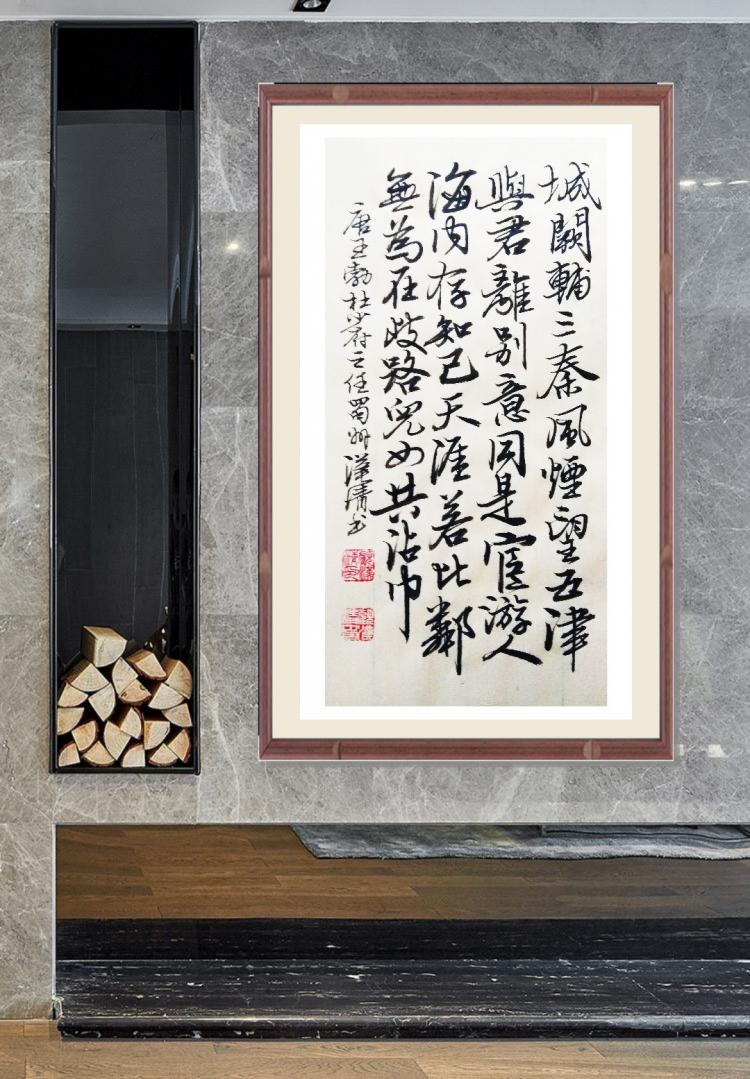 城闕輔三秦風煙望五津
與君離別意同是宦游人
海内存知己天涯若比鄰
無為在歧路兒女共沾巾
唐王勃杜少府之任蜀州漢清书